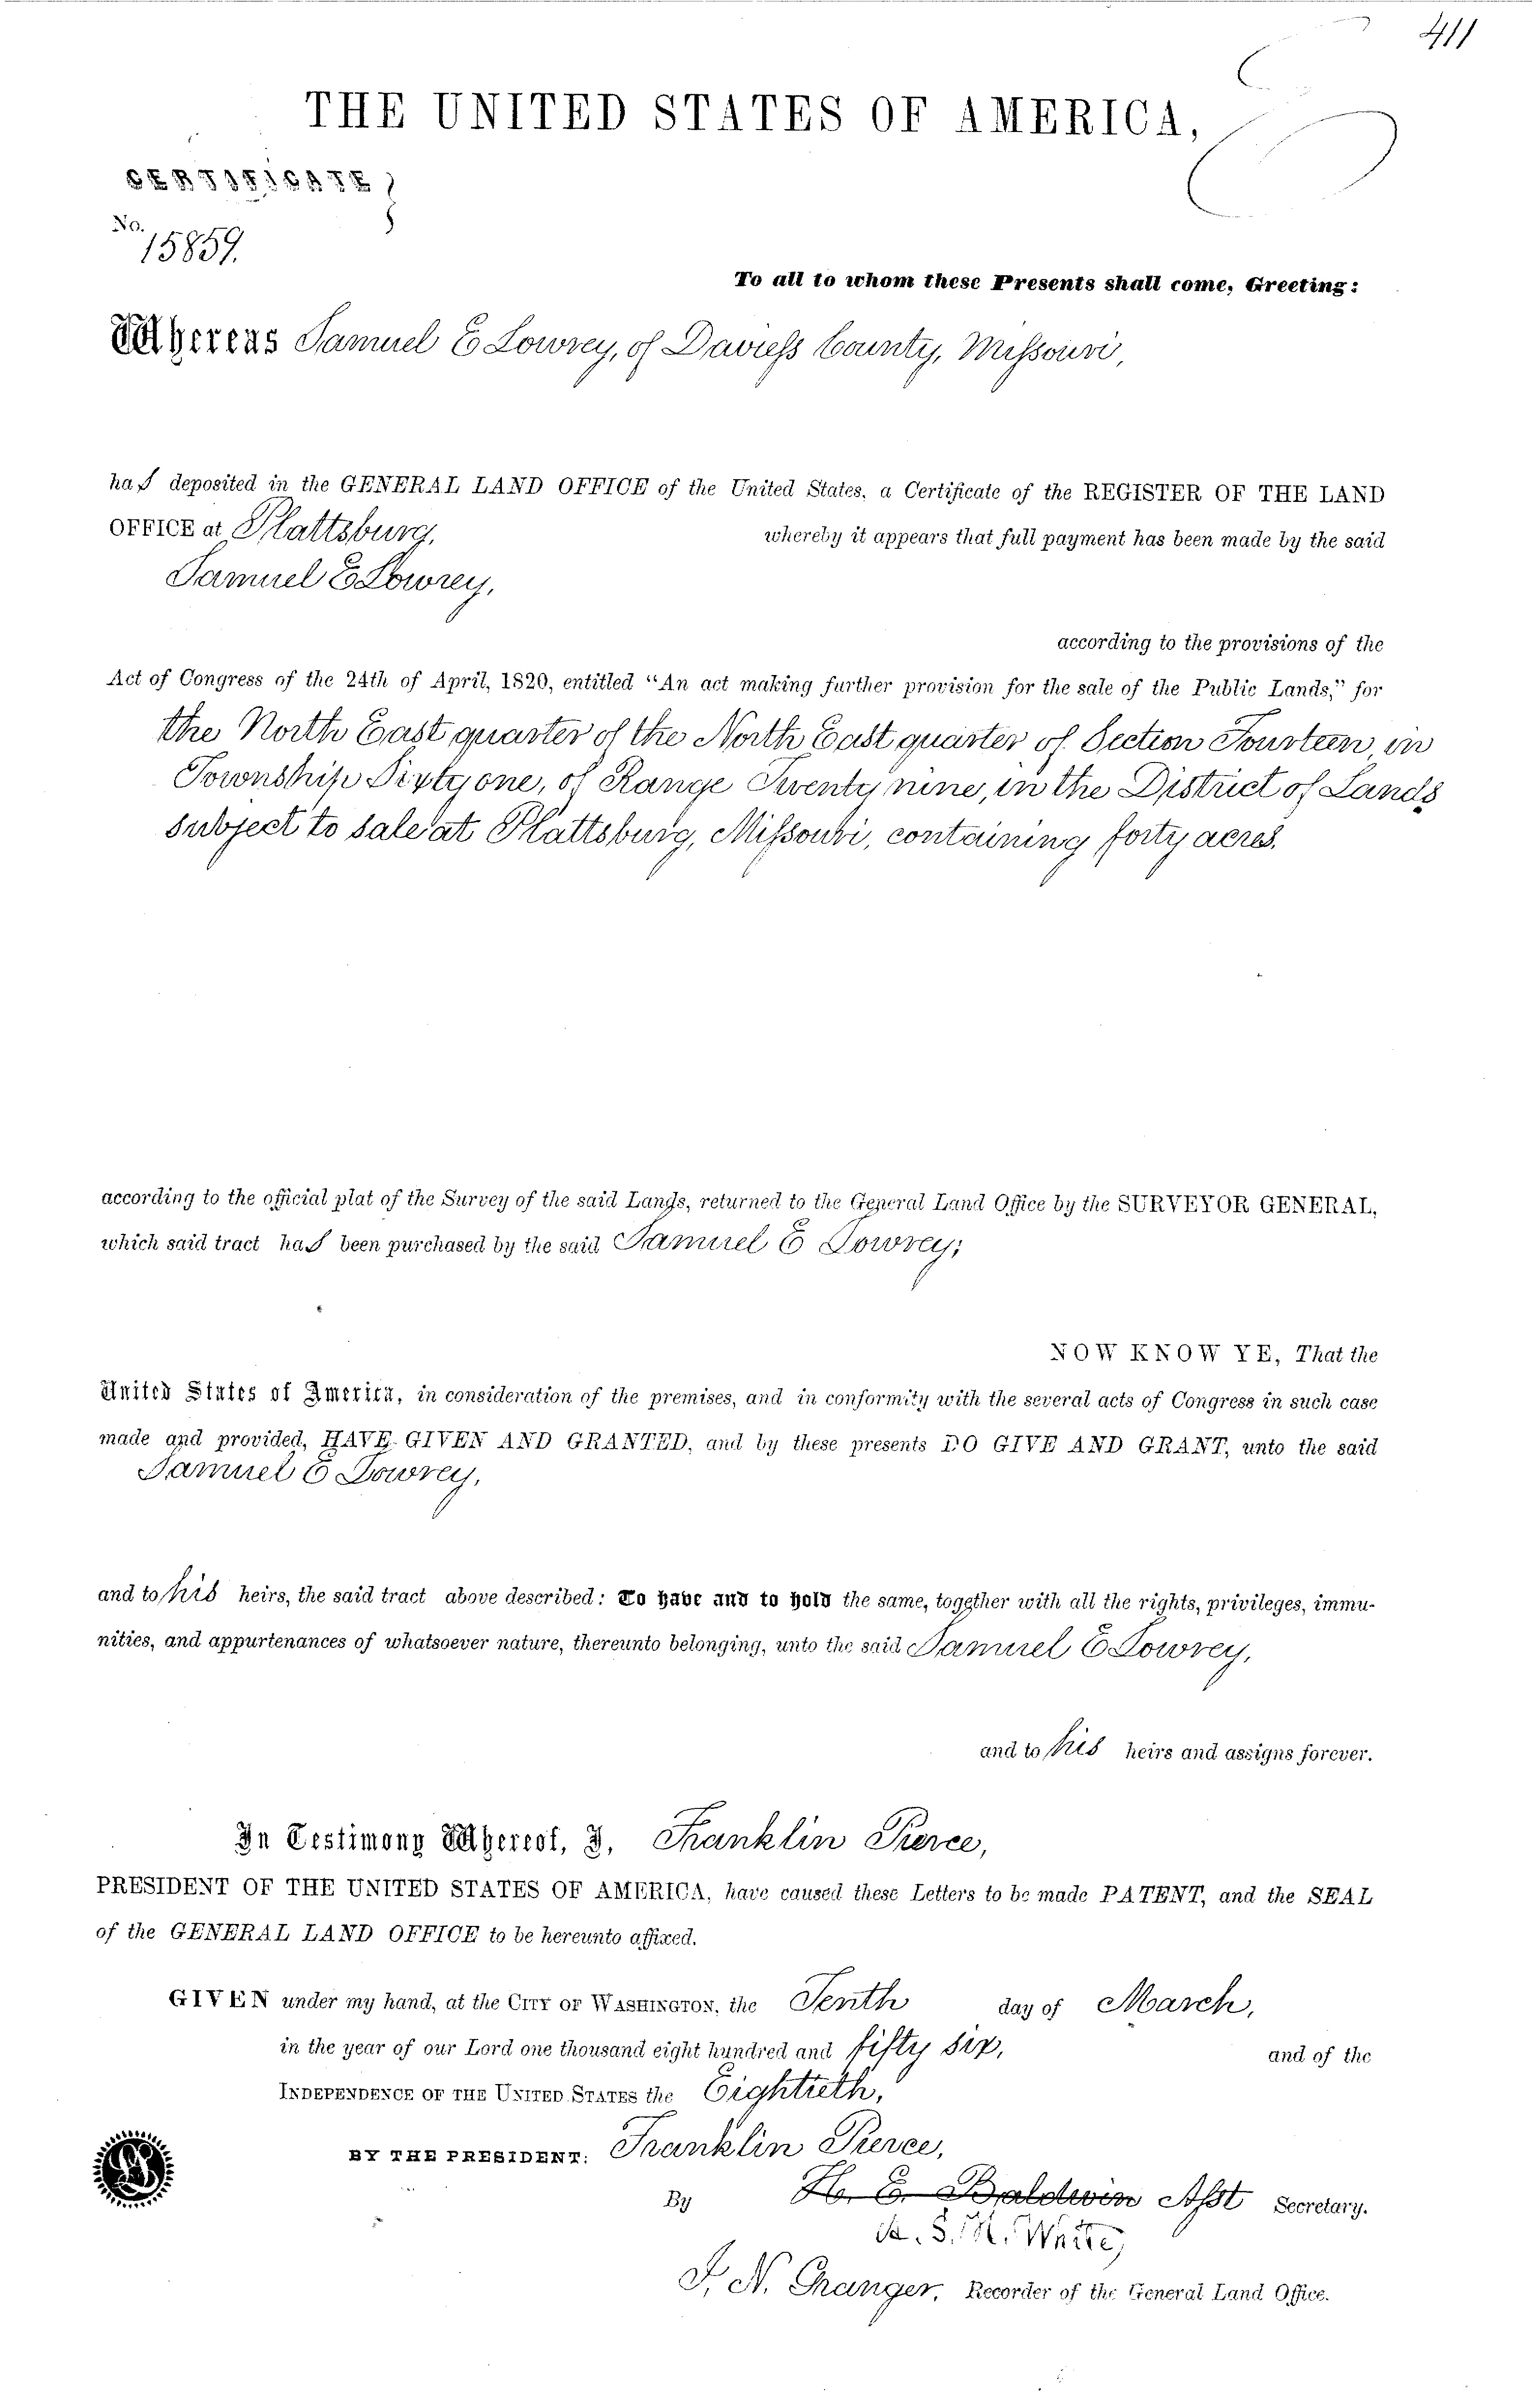 411
THE UNITED STATES OF AMERICA,
CERTIFICATE
No. 15859.
To all to whom these Presents shall come, Greeting:
Whereas Samuel E Lowrey, of Daviess County, Missouri,
has deposited in the GENERAL LAND OFFICE of the United States, a Certificate of the REGISTER OF THE LAND
OFFICE at Plattsburg, whereby it appears that full payment has been made by the said
Samuel E Lowrey,
according to the provisions of the
Act of Congress of the 24th of April, 1820, entitled "An act making further provision for the sale of the Public Lands," for
the North East quarter of the North East quarter of Section Fourteen in
Township Sixty one, of Range Twenty nine, in the District of Lands
subject to sale at Plattsburg, Missouri, containing forty acres.
according to the official plat of the Survey of the said Lands, returned to the General Land Office by the SURVEYOR GENERAL,
which said tract has been purchased by the said Samuel E Lowrey;
NOW KNOW YE, That the
United States of America, in consideration of the premises, and in conformity with the several acts of Congress in such case
made and provided, HAVE GIVEN AND GRANTED, and by these presents DO GIVE AND GRANT, unto the said
Samuel E Lowrey,
and to his heirs, the said tract above described: To have and to hold the same, together with all the rights, privileges, immu-
nities, and appurtenances of whatsoever nature, thereunto belonging, unto the said Samuel E Lowrey,
and to his heirs and assigns forever.
In Testimony Whereof, I, Franklin Pierce,
PRESIDENT OF THE UNITED STATES OF AMERICA, have caused these Letters to be made PATENT, and the SEAL
of the GENERAL LAND OFFICE to be hereunto affixed.
GIVEN under my hand, at the CITY OF WASHINGTON, the Tenth day of March,
in the year of our Lord one thousand eight hundred and fifty six, and of the
INDEPENDENCE OF THE UNITED STATES the Eightieth,
BY THE PRESIDENT: Franklin Pierce,
By H. E. Baldwin Asst Secretary.
White,
J. N. Granger, Recorder of the General Land Office.